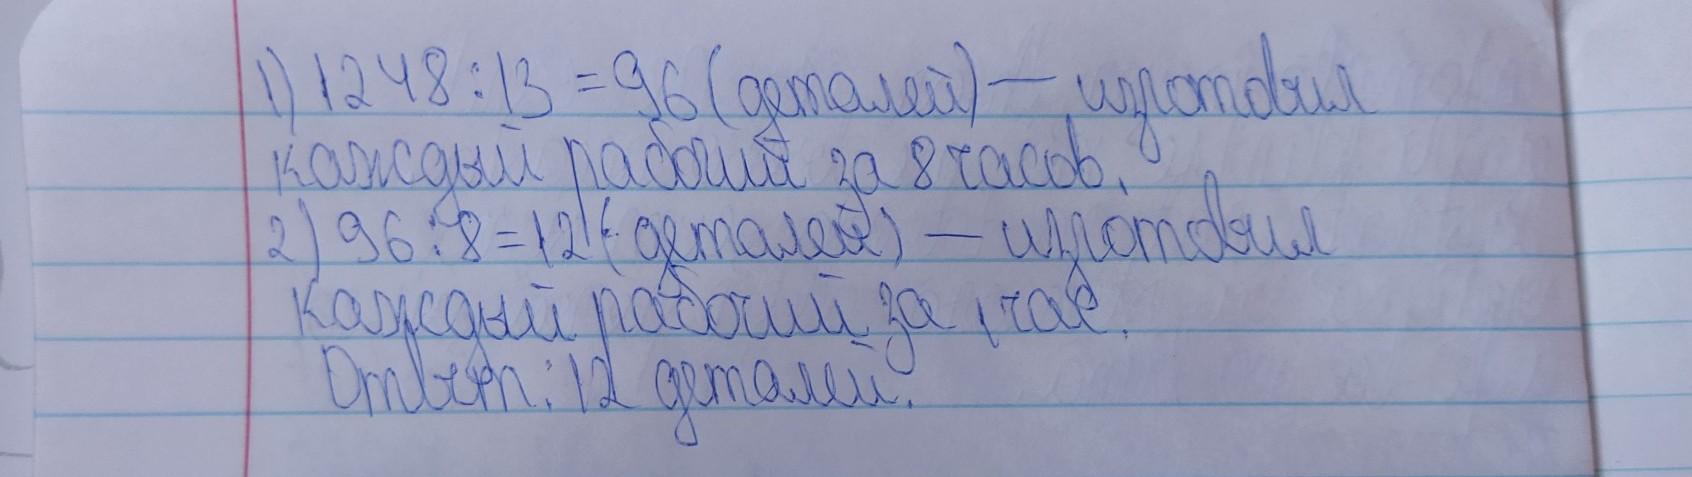 1) 1248:13=96(деталей) — изготовил
каждый рабочий за 8 часов.
2) 96:8=12(деталей) — изготовил
каждый рабочий за 1 час.
Ответ: 12 деталей.